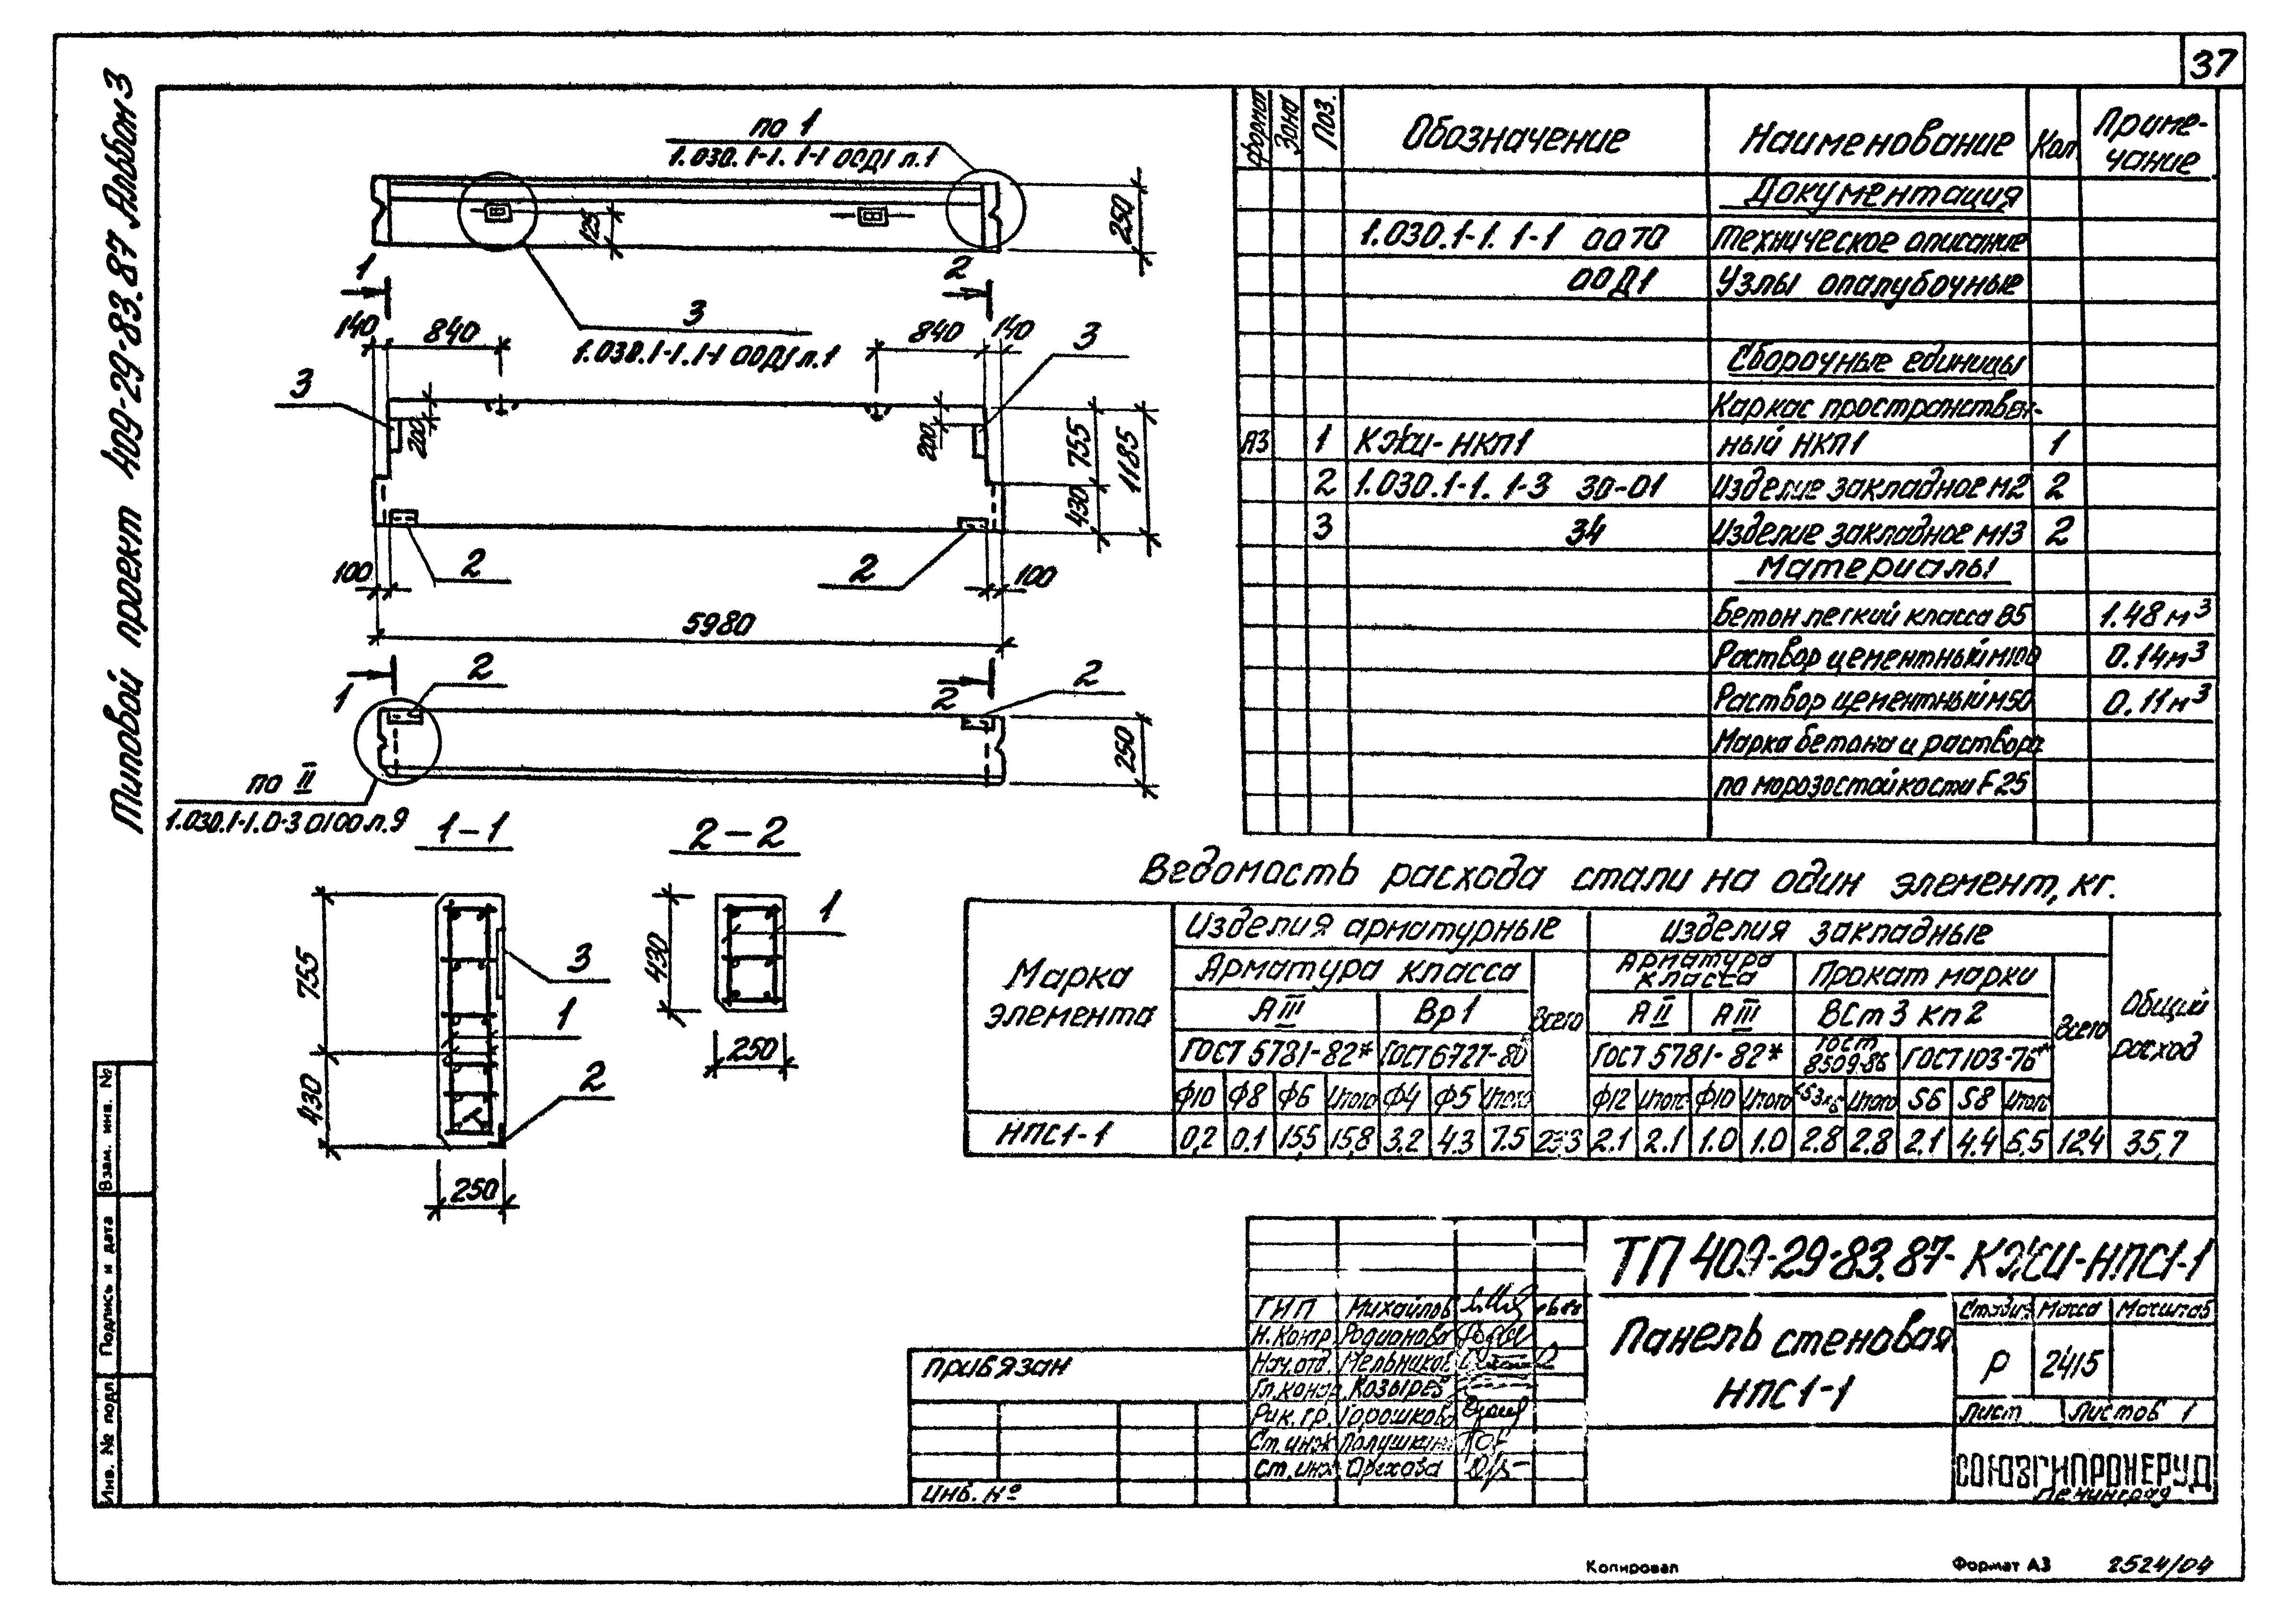 37
Типовой проект 409-29-83.87 Альбом 3
по 1
1.030.1-1. 1-1 00Д1 л.1
125
250
1
2
3
1.030.1-1. 1-1 00Д1 л.1
140
840
840
140
3
3
200
200
755
1185
430
100
2
2
100
5980
1
2
2
2
250
по II
1.030.1-1.0-3 0100 л.9
1-1
2-2
755
430
3
1
2
250
430
1
250
Формат
Зона
Поз.
Обозначение
Наименование
Кол.
Приме-
чание
Документация
1.030.1-1. 1-1 00ТО Техническое описание
00Д1 Узлы опалубочные
Сборочные единицы
Каркас пространствен-
А3 1 КЖИ-НКП1 ный НКП1 1
2 1.030.1-1. 1-3 30-01 Изделие закладное М2 2
3 34 Изделие закладное М13 2
Материалы
Бетон легкий класса В5 1.48 м3
Раствор цементный М100 0.14 м3
Раствор цементный М50 0.11 м3
Марка бетона и раствора
по морозостойкости F25
Ведомость расхода стали на один элемент, кг.
Марка элемента
Изделия арматурные
Изделия закладные
Общий расход
Арматура класса
Всего
Арматура класса
Прокат марки
Всего
АIII
Вр1
АII
АIII
ВСт3 кп2
ГОСТ 5781-82*
ГОСТ 6727-80
ГОСТ 5781-82*
ГОСТ 8509-86
ГОСТ 103-76*
Ф10 Ф8 Ф6 Итого Ф4 Ф5 Итого Ф12 Итого Ф10 Итого Итого S6 S8 Итого
НПС1-1 0,2 0.1 15,5 15,8 3.2 4.3 7.5 23.3 2.1 2.1 1.0 1.0 2.8 2.8 2.1 4.4 6,5 12.4 35,7
ТП 409-29-83.87-КЖИ-НПС1-1
Панель стеновая
НПС1-1
Стадия Масса Масштаб
Р 2415
Лист Листов 1
СОЮЗГИПРОНЕРУД
Ленинград
ГИП Михайлов
Н.контр. Родионова
Нач.отд. Мельников
Гл.контр. Козырев
Рук.гр. Горошкова
Ст.инж.
Ст.инж. Орехова
Привязан
Инв. №
Взам. инв. №
Подпись и дата
Инв. № подл.
Копировал
Формат А3
2524/04